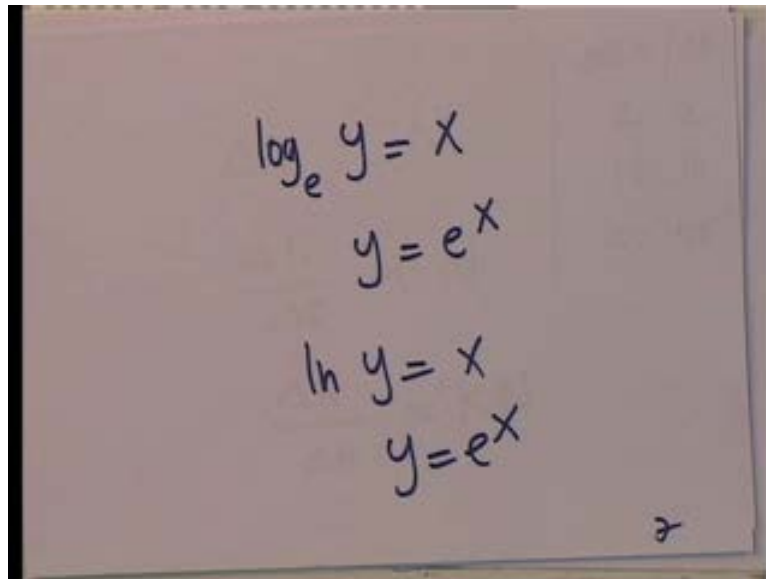 logₑ y = x
y = eˣ
ln y = x
y = eˣ
2